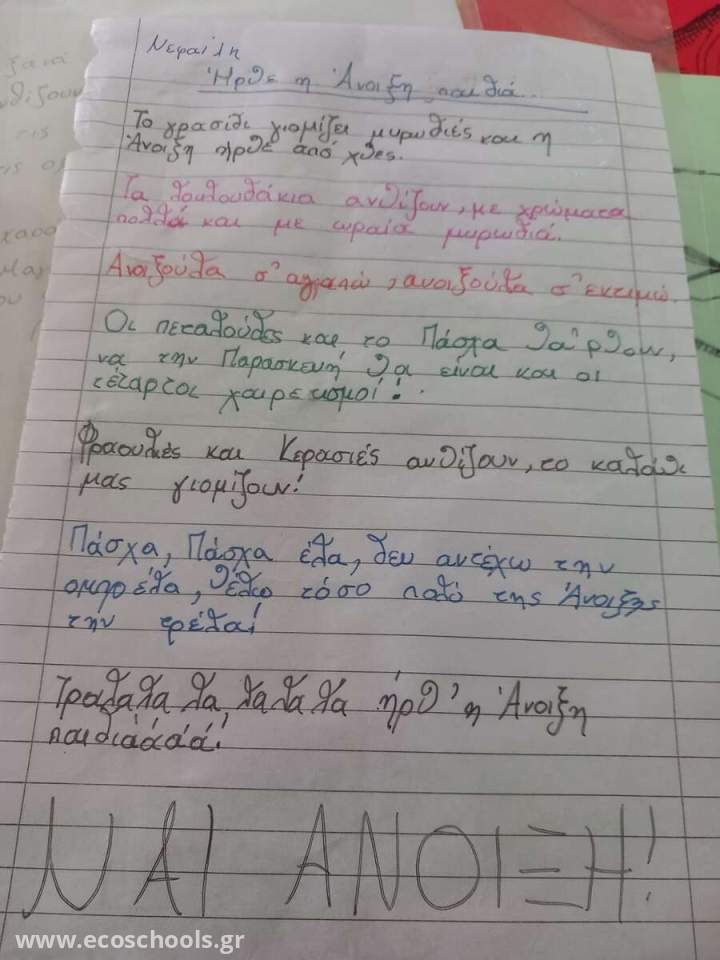 Νεφέλη
Ήρθε η Άνοιξη παιδιά...
Το γρασίδι γιομίζει μυρωδιές και η
Άνοιξη ήρθε από χθες.
Τα λουλουδάκια ανθίζουν, με χρώματα
πολλά και με ωραία μυρωδιά.
Ανοιξούλα σ' αγαπώ, ανοιξούλα σ' εκτιμώ.
Οι πεταλούδες και το Πάσχα θα 'ρθουν,
να την Παρασκευή θα είναι και οι
τέταρτοι χαιρετισμοί!
Φραουλιές και Κερασιές ανθίζουν, το καλάθι
μας γιομίζουν!
Πάσχα, Πάσχα έλα, δεν αντέχω την
ομπρέλα, θέλω τόσο πολύ της Άνοιξης
την τρέλα!
Τραλαλα λα, λα λα λα ήρθ' η Άνοιξη
παιδιάάάά!
ΝΑΙ ΑΝΟΙΞΗ!
www.ecoschools.gr
ξανά